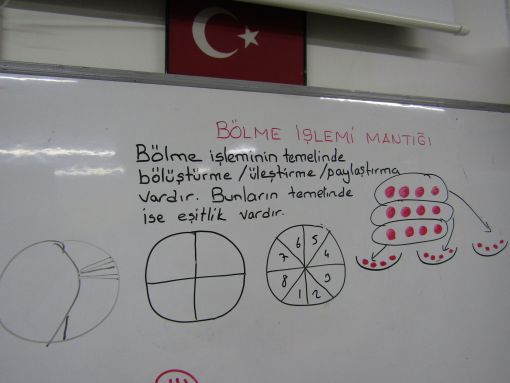 BÖLME İŞLEMİ MANTIĞI
Bölme işleminin temelinde
bölüştürme / üleştirme / paylaştırma
vardır. Bunların temelinde
ise eşitlik vardır.
6 5
7 4
8 3
1 2